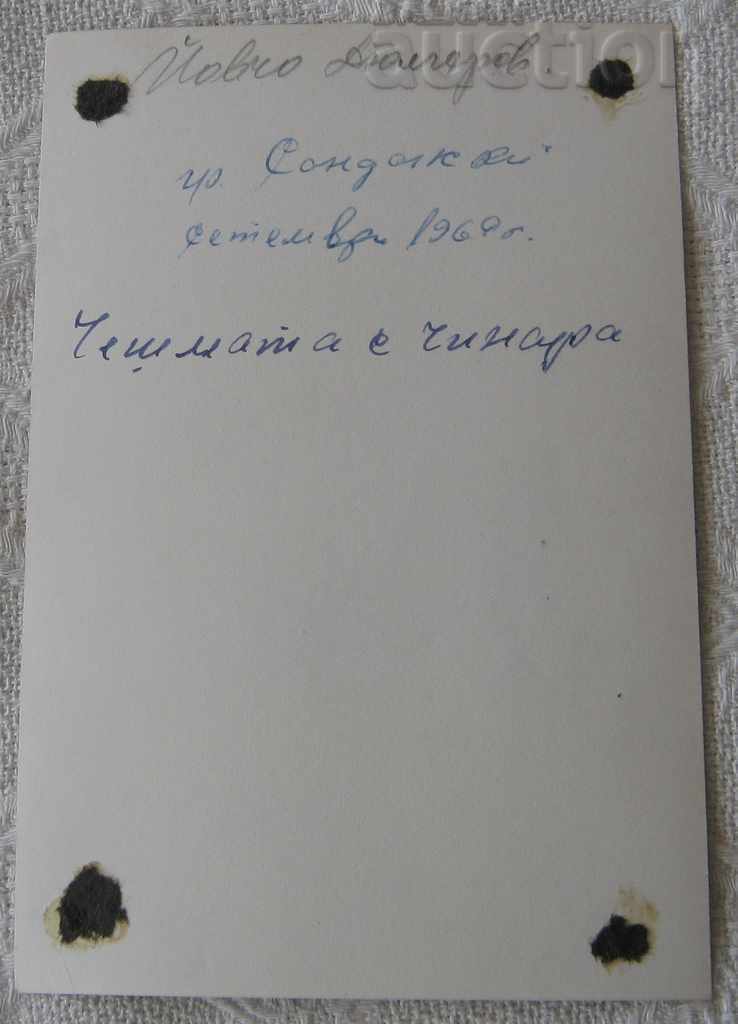 Йовчо Дюлгеров.
гр. Сандански
септември 1960г.
Чешмата с чинара
auction